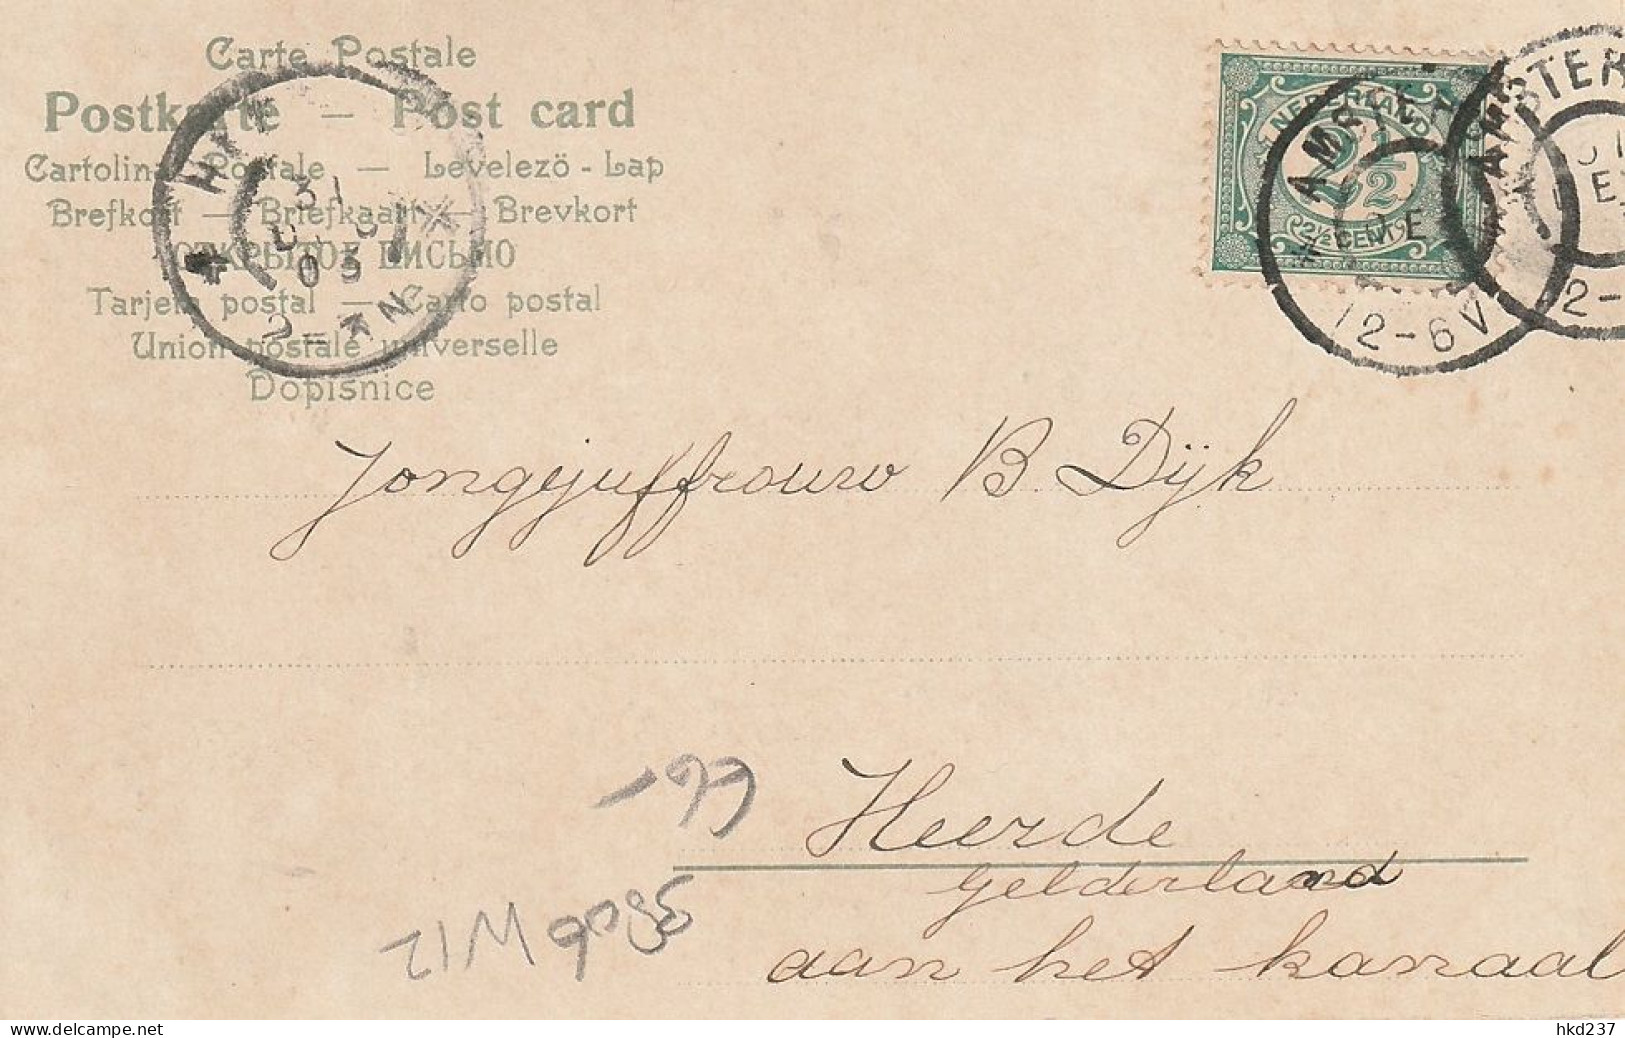 Carte Postale
Postkarte — Post card
Cartolina Postale — Levelezö - Lap
Brefkort — Briefkaart — Brevkort
ОТКРЫТОЕ ПИСЬМО
Tarjeta postal — Carto postal
Union postale universelle
Dopisnice
31
03
NEDERLAND
2½
2½ CENT
AMSTER
12-6V
AMSTER
Jongejuffrouw B Dijk
Heerde
Gelderland
aan het kanaal
hkd237